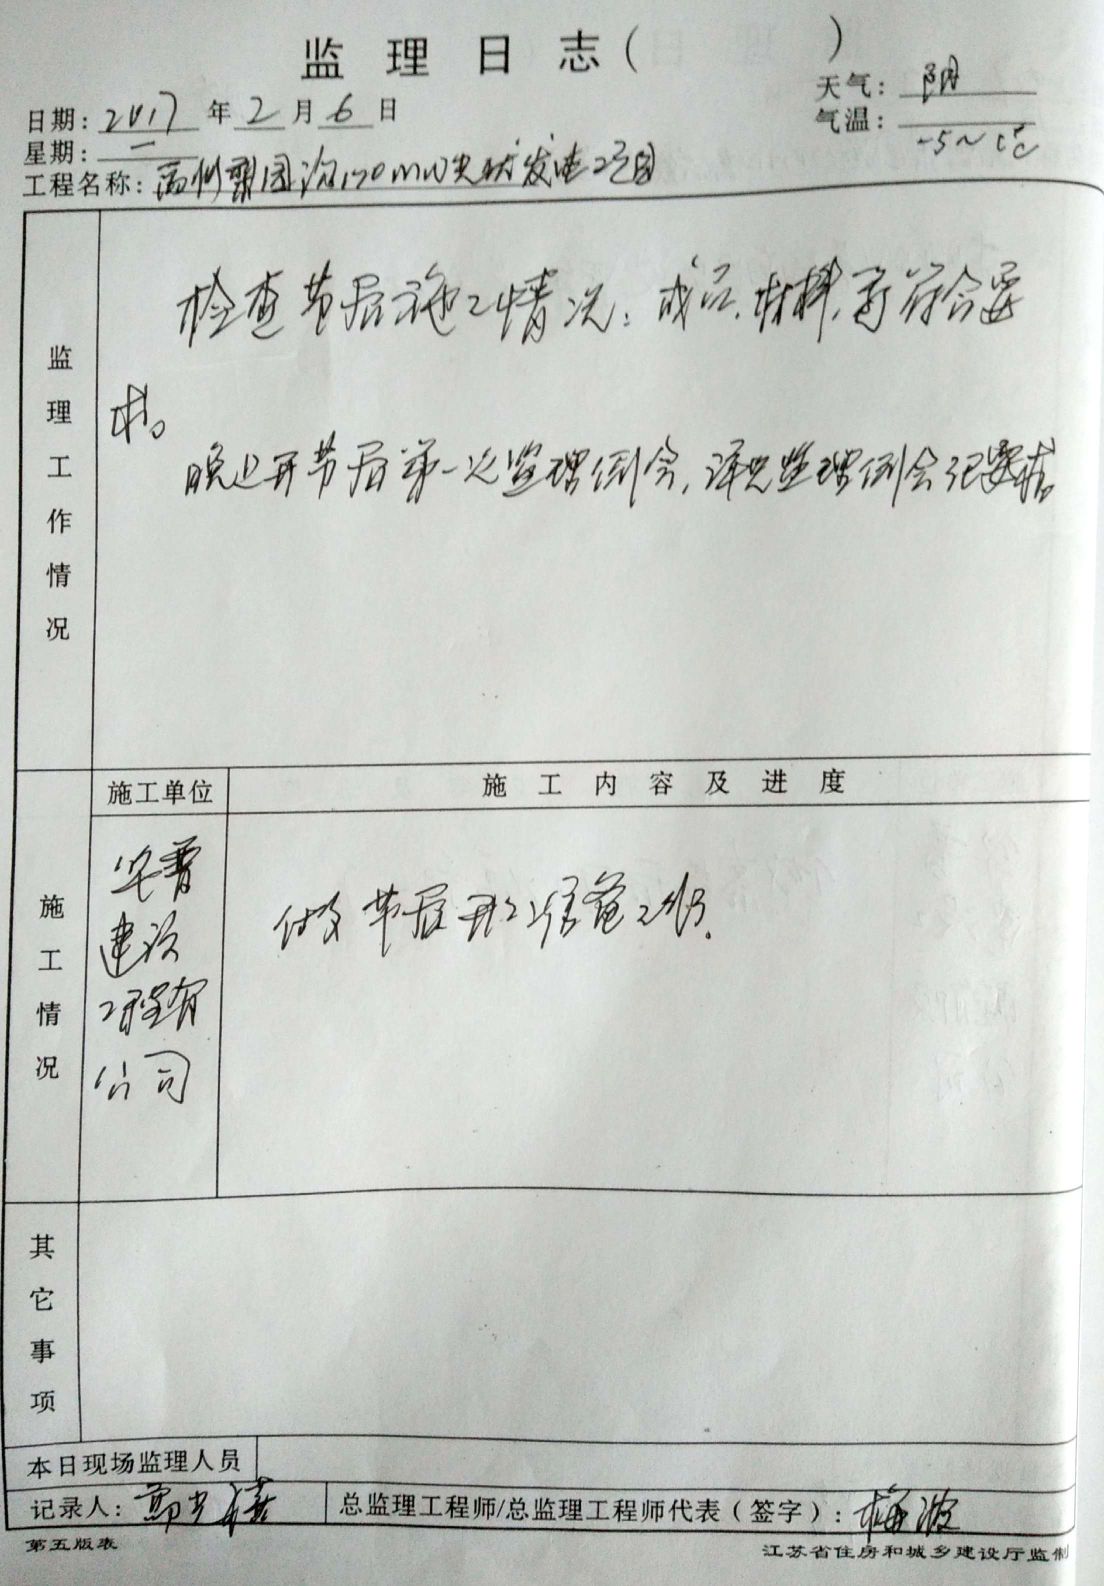 监理日志( )
日期: 2017年2月6日
天气: 阴
星期: 一
气温: -5~6℃
工程名称: 170MW光伏发电工程
监理工作情况
检查节后施工情况: 成品、材料、等符合要
求。
晚上开节后第一次监理例会, 详见监理例会纪要
施工情况
施工单位
施工内容及进度
建设
工程有
公司
做节后开工准备工作.
其它事项
本日现场监理人员
记录人:
总监理工程师/总监理工程师代表(签字): 梅波
第五版表
江苏省住房和城乡建设厅监制